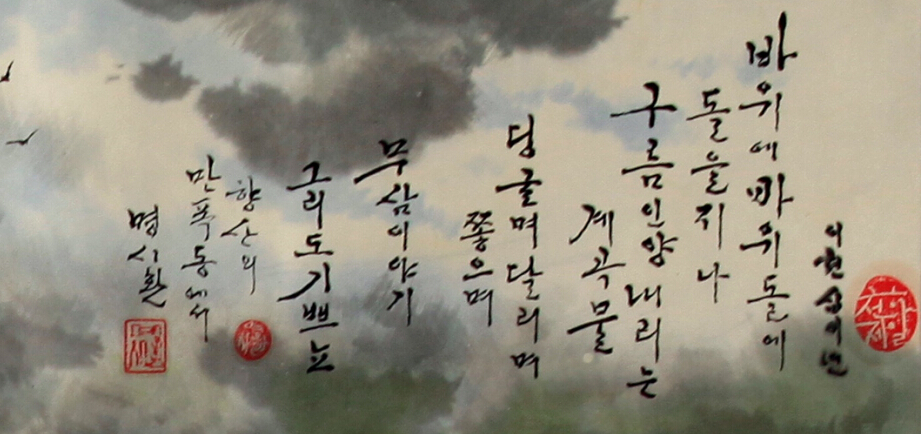 이천십의년
바위에 바위돌에
돌을 지나
구름인양 내리는
계곡물
딩굴며 달리며
쫓으며
무삼이야기
그리도 기쁘뇨
향산의
만폭동에서
명시환